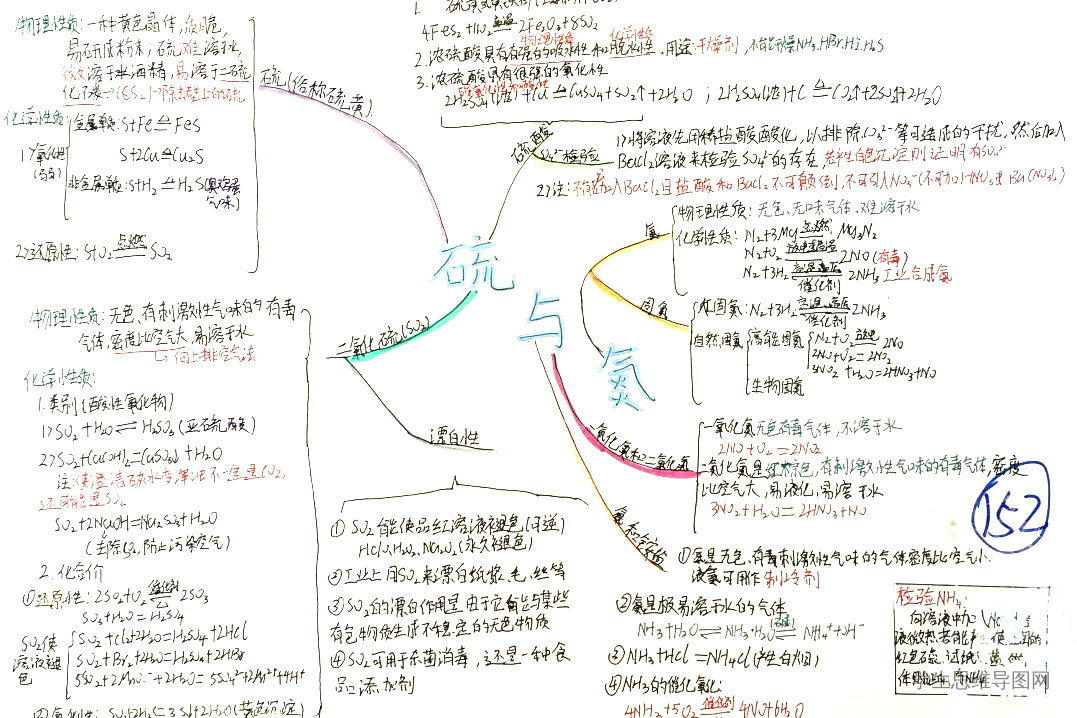 物理性质：一种黄色晶体，质脆，
易研成粉末；硫难溶于水，
微溶于酒精，易溶于二硫
化碳(CS₂)→除去壁上的硫
硫(俗称硫黄)
化学性质：
1>氧化性
(弱)
金属单质：S+Fe≜FeS
S+2Cu≜Cu₂S
非金属单质：S+H₂≜H₂S(臭鸡蛋
气味)
2>还原性：S+O₂ 点燃 SO₂
4FeS₂+11O₂ 高温 2Fe₂O₃+8SO₂
2. 浓硫酸具有强的吸水性和脱水性，用途：干燥剂，不能干燥NH₃、HBr、HI、H₂S
物理性质
化学性质
3. 浓硫酸具有很强的氧化性
2H₂SO₄(浓)+Cu≜CuSO₄+SO₂↑+2H₂O；2H₂SO₄(浓)+C≜CO₂↑+2SO₂↑+2H₂O
硫酸
SO₄²⁻检验
1>将溶液先用稀盐酸酸化，以排除CO₃²⁻等可造成的干扰，然后加入
BaCl₂溶液来检验SO₄²⁻的存在，若产生白色沉淀则证明有SO₄²⁻
2>注：不能加入BaCl₂且盐酸和BaCl₂不可颠倒，不可引入NO₃⁻(不可加HNO₃或Ba(NO₃)₂)
硫
与
氮
氮
物理性质：无色、无味气体、难溶于水
化学性质：N₂+3Mg 点燃 Mg₃N₂
N₂+O₂ 放电或高温 2NO(有毒)
N₂+3H₂ 高温高压 催化剂 2NH₃ 工业合成氨
固氮
人工固氮：N₂+3H₂ 高温、高压 催化剂 2NH₃
自然固氮
高能固氮
N₂+O₂ 放电 2NO
2NO+O₂=2NO₂
3NO₂+H₂O=2HNO₃+NO
生物固氮
一氧化氮和二氧化氮
一氧化氮无色有毒气体，不溶于水
2NO+O₂=2NO₂
二氧化氮是红棕色，有刺激性气味的有毒气体，密度
比空气大，易液化，易溶于水
3NO₂+H₂O=2HNO₃+NO
152
氨和铵盐
①氨是无色、有毒刺激性气味的气体密度比空气小
液氨可用作制冷剂
②氨是极易溶于水的气体
NH₃+H₂O⇌NH₃·H₂O⇌NH₄⁺+OH⁻
③NH₃+HCl=NH₄Cl(产生白烟)
④NH₃的催化氧化：
4NH₃+5O₂ 催化剂 4NO+6H₂O
检验NH₄：
向溶液中加
红色石蕊试纸
二氧化硫(SO₂)
物理性质：无色、有刺激性气味的有毒
气体，密度比空气大，易溶于水
向上排空气法
化学性质：
1. 类别(酸性氧化物)
1>SO₂+H₂O⇌H₂SO₃(亚硫酸)
2>SO₂+Ca(OH)₂=CaSO₃↓+H₂O
注：使澄清石灰水变浑浊不一定是CO₂，
还可能是SO₂
SO₂+2NaOH=Na₂SO₃+H₂O
(去除SO₂，防止污染空气)
2. 化合价
①还原性：2SO₂+O₂ 催化剂 △ 2SO₃
SO₃+H₂O=H₂SO₄
SO₂使
溶液褪
色
SO₂+Cl₂+2H₂O=H₂SO₄+2HCl
SO₂+Br₂+2H₂O=H₂SO₄+2HBr
5SO₂+2MnO₄⁻+2H₂O=5SO₄²⁻+2Mn²⁺+4H⁺
②氧化性：SO₂+2H₂S=3S↓+2H₂O(黄色沉淀)
漂白性
①SO₂能使品红溶液褪色(可逆)
HClO、H₂O₂、Na₂O₂(永久褪色)
②工业上用SO₂来漂白纸浆、毛、丝等
③SO₂的漂白作用是由于它能与某些
有色物质生成不稳定的无色物质
④SO₂可用于杀菌消毒，还是一种食
品添加剂
学生思维导图网